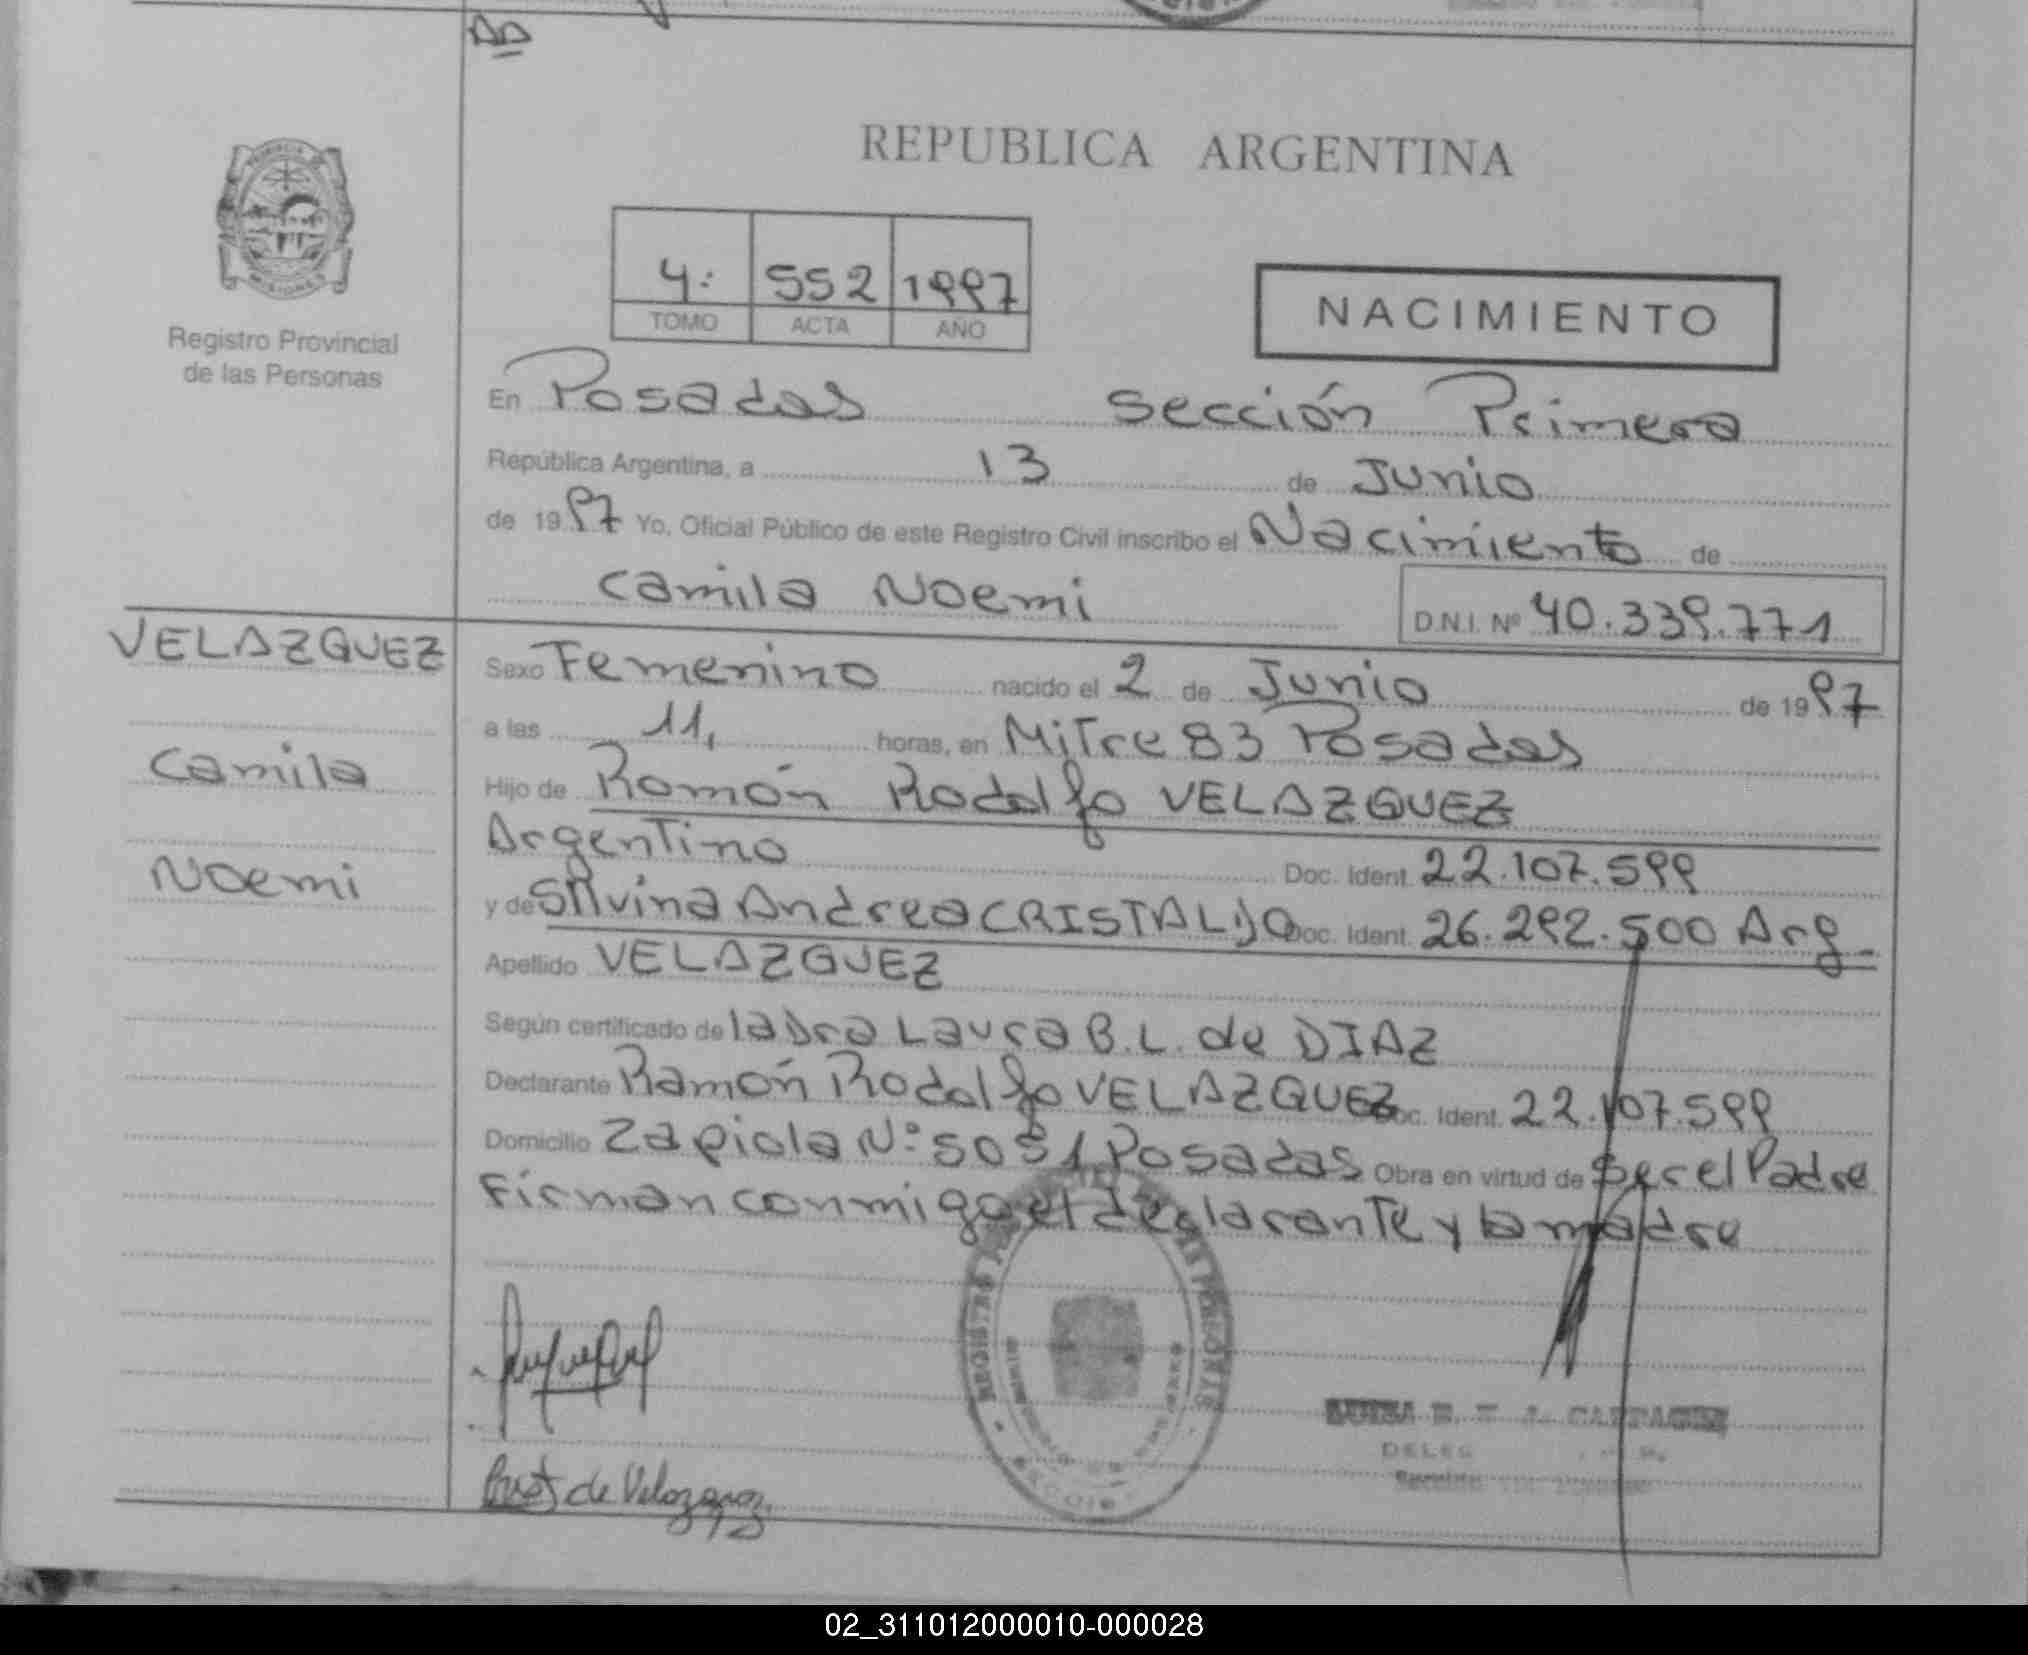 AD
REPUBLICA ARGENTINA
PROVINCIA DE MISIONES
Registro Provincial
de las Personas
4: 552 1997
TOMO ACTA AÑO
NACIMIENTO
En Posadas sección Primera
República Argentina, a 13 de Junio
de 1997 Yo, Oficial Público de este Registro Civil inscribo el Nacimiento de
Camila Noemi D.N.I. Nº 40.339.771
VELAZQUEZ
Camila
Noemi
Sexo Femenino nacido el 2 de Junio de 1997
a las 11, horas, en Mitre 83 Posadas
Hijo de Ramón Rodolfo VELAZQUEZ
Argentino Doc. Ident. 22.107.599
y de Silvina Andrea CRISTALDO Doc. Ident. 26.292.500 Arg.
Apellido VELAZQUEZ
Según certificado de la Dra Laura B.L. de DIAZ
Declarante Ramón Rodolfo VELAZQUEZ Doc. Ident. 22.107.599
Domicilio Zapiola N: 5051 Posadas Obra en virtud de ser el Padre
Firman conmigo el declarante y la madre
de Velazquez
REGISTRO
DELEG
02_311012000010-000028